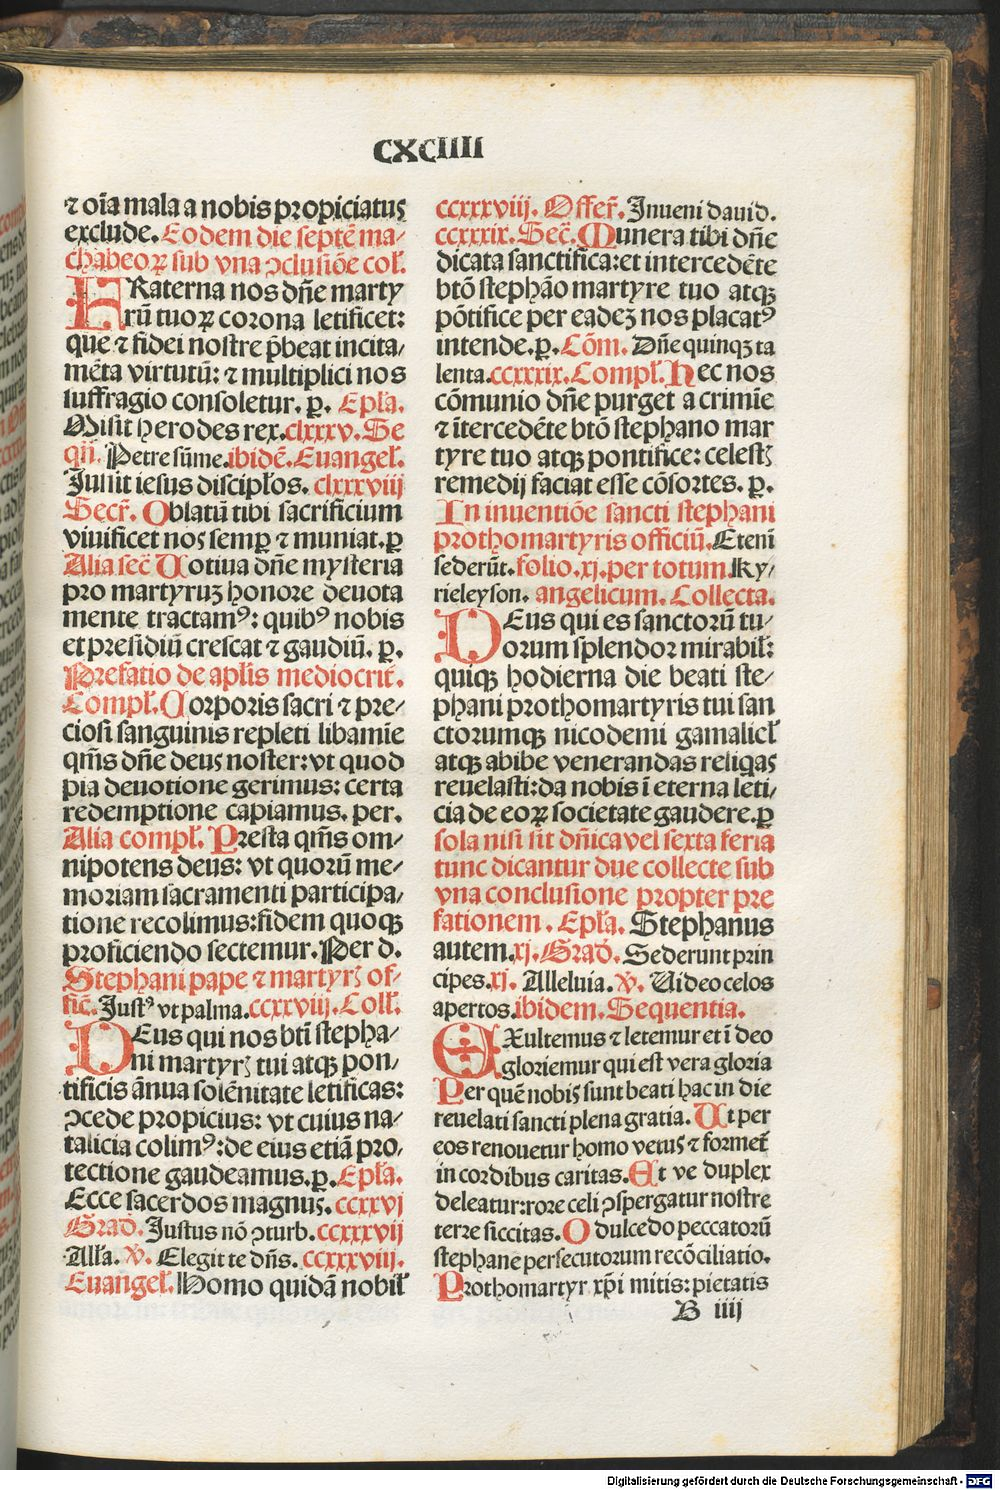 CXCIIII
⁊ oīa mala a nobis propiciatus
exclude. Eodem die septē ma⸗
chabeoꝝ sub vna ↄclusiōe col̄.
FRaterna nos dñe marty
rū tuoꝝ corona letificet:
que ⁊ fidei nostre p̄beat incita⸗
mēta virtutū: ⁊ multiplici nos
suffragio consoletur. ꝑ. Epl̄a.
Misit herodes rex. clxxxv. Se
qñ. Petre sūme. ibidē. Euangel̄.
Iussit iesus discipl̄os. clxxxviij
Secr̄. Oblatū tibi sacrificium
viuificet nos semꝑ ⁊ muniat. ꝑ
Alia sec̄ Uotiua dñe mysteria
pro martyruꝫ honore deuota
mente tractamꝰ: quibꝰ nobis
et presidiū crescat ⁊ gaudiū. ꝑ.
Prefatio de apl̄is mediocrit̄.
Compl̄. Corporis sacri ⁊ pre⸗
ciosi sanguinis repleti libamīe
qm̄s dñe deus noster: vt quod
pia deuotione gerimus: certa
redemptione capiamus. per.
Alia compl̄. Presta qm̄s om⸗
nipotens deus: vt quorū me⸗
moriam sacramenti participa⸗
tione recolimus: fidem quoqꝫ
proficiendo sectemur. Per d.
Stephani pape ⁊ martyrꝭ of⸗
fic̄. Justꝰ vt palma. ccxxviij. Coll̄.
DEus qui nos bt̄i stepha⸗
ni martyrꝭ tui atqꝫ pon⸗
tificis ānua solēnitate letificas:
ↄcede propicius: vt cuius na⸗
talicia colimꝰ: de eius etiā pro⸗
tectione gaudeamus. ꝑ. Epl̄a.
Ecce sacerdos magnus. ccxxvj
Grad̄. Justus nō ↄturb. ccxxxvij
Alla. ℣. Elegit te dñs. ccxxxviij.
Euangel̄. Homo quidā nobil̄
ccxxxviij. Offer̄. Inueni dauid.
ccxxxix. Sec̄. Munera tibi dñe
dicata sanctifica: et intercedēte
bt̄o stephāo martyre tuo atqꝫ
pōtifice per eadeꝫ nos placatꝰ
intende. ꝑ. Cōm. Dñe quinqꝫ ta
lenta. ccxxxix. Compl̄. Hec nos
cōmunio dñe purget a crimīe
⁊ ītercedēte bt̄o stephano mar
tyre tuo atqꝫ pontifice: celestꝭ
remedij faciat esse cōsortes. ꝑ.
In inuentiōe sancti stephani
prothomartyris officiū. Etenī
sederūt. folio. xj. per totum Ky⸗
rieleyson. angelicum. Collecta.
DEus qui es sanctorū tu⸗
orum splendor mirabil̄:
quiqꝫ hodierna die beati ste⸗
phani prothomartyris tui san
ctorumqꝫ nicodemi gamaliel̄
atqꝫ abibe venerandas reliqas
reuelasti: da nobis ī eterna leti⸗
cia de eoꝝ societate gaudere. ꝑ
sola nisi sit dñica vel sexta feria
tunc dicantur due collecte sub
vna conclusione propter pre
fationem. Epl̄a. Stephanus
autem. xj. Grad̄. Sederunt prin
cipes. xj. Alleluia. ℣. Uideo celos
apertos. ibidem. Sequentia.
EXultemus ⁊ letemur et ī deo
gloriemur qui est vera gloria
Per quē nobis sunt beati hac in die
reuelati sancti plena gratia. Ut per
eos renouetur homo vetus ⁊ formet̄
in cordibus caritas. Et ve duplex
deleatur: rore celi ↄspergatur nostre
terre siccitas. O dulcedo peccatorū
stephane persecutorum recōciliatio.
Prothomartyr xp̄i mitis: pietatis
B iiij
Digitalisierung gefördert durch die Deutsche Forschungsgemeinschaft - DFG